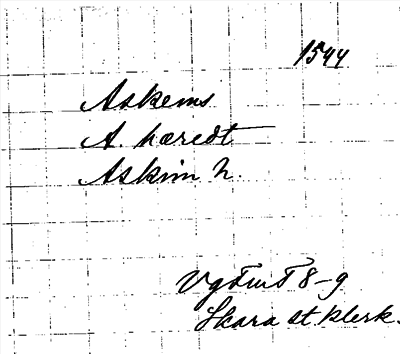 1544
Askems
A. hæredt
Askim h.
VgFmT 8-9
Skara st. klerk.